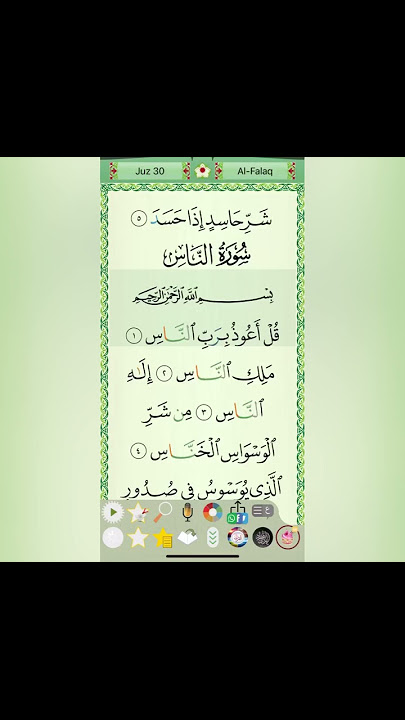 Juz 30 Al-Falaq
شَرِّ حَاسِدٍ إِذَا حَسَدَ ٥
سُورَةُ النَّاسِ
بِسْمِ اللَّهِ الرَّحْمَٰنِ الرَّحِيمِ
قُلْ أَعُوذُ بِرَبِّ ٱلنَّاسِ ١
مَلِكِ ٱلنَّاسِ ٢ إِلَٰهِ
ٱلنَّاسِ ٣ مِن شَرِّ
ٱلْوَسْوَاسِ ٱلْخَنَّاسِ ٤
ٱلَّذِي يُوَسْوِسُ فِي صُدُورِ